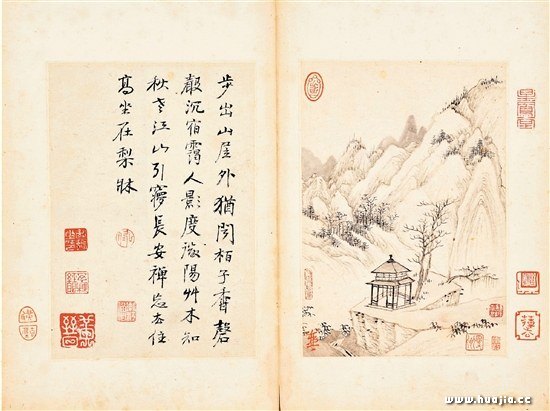 步出山屋外猶聞柏子香磬
聲沉宿靄人影度陽艸木知
秋老江山引夢長安禪忘去住
高坐在梨牀
www.huajia.cc